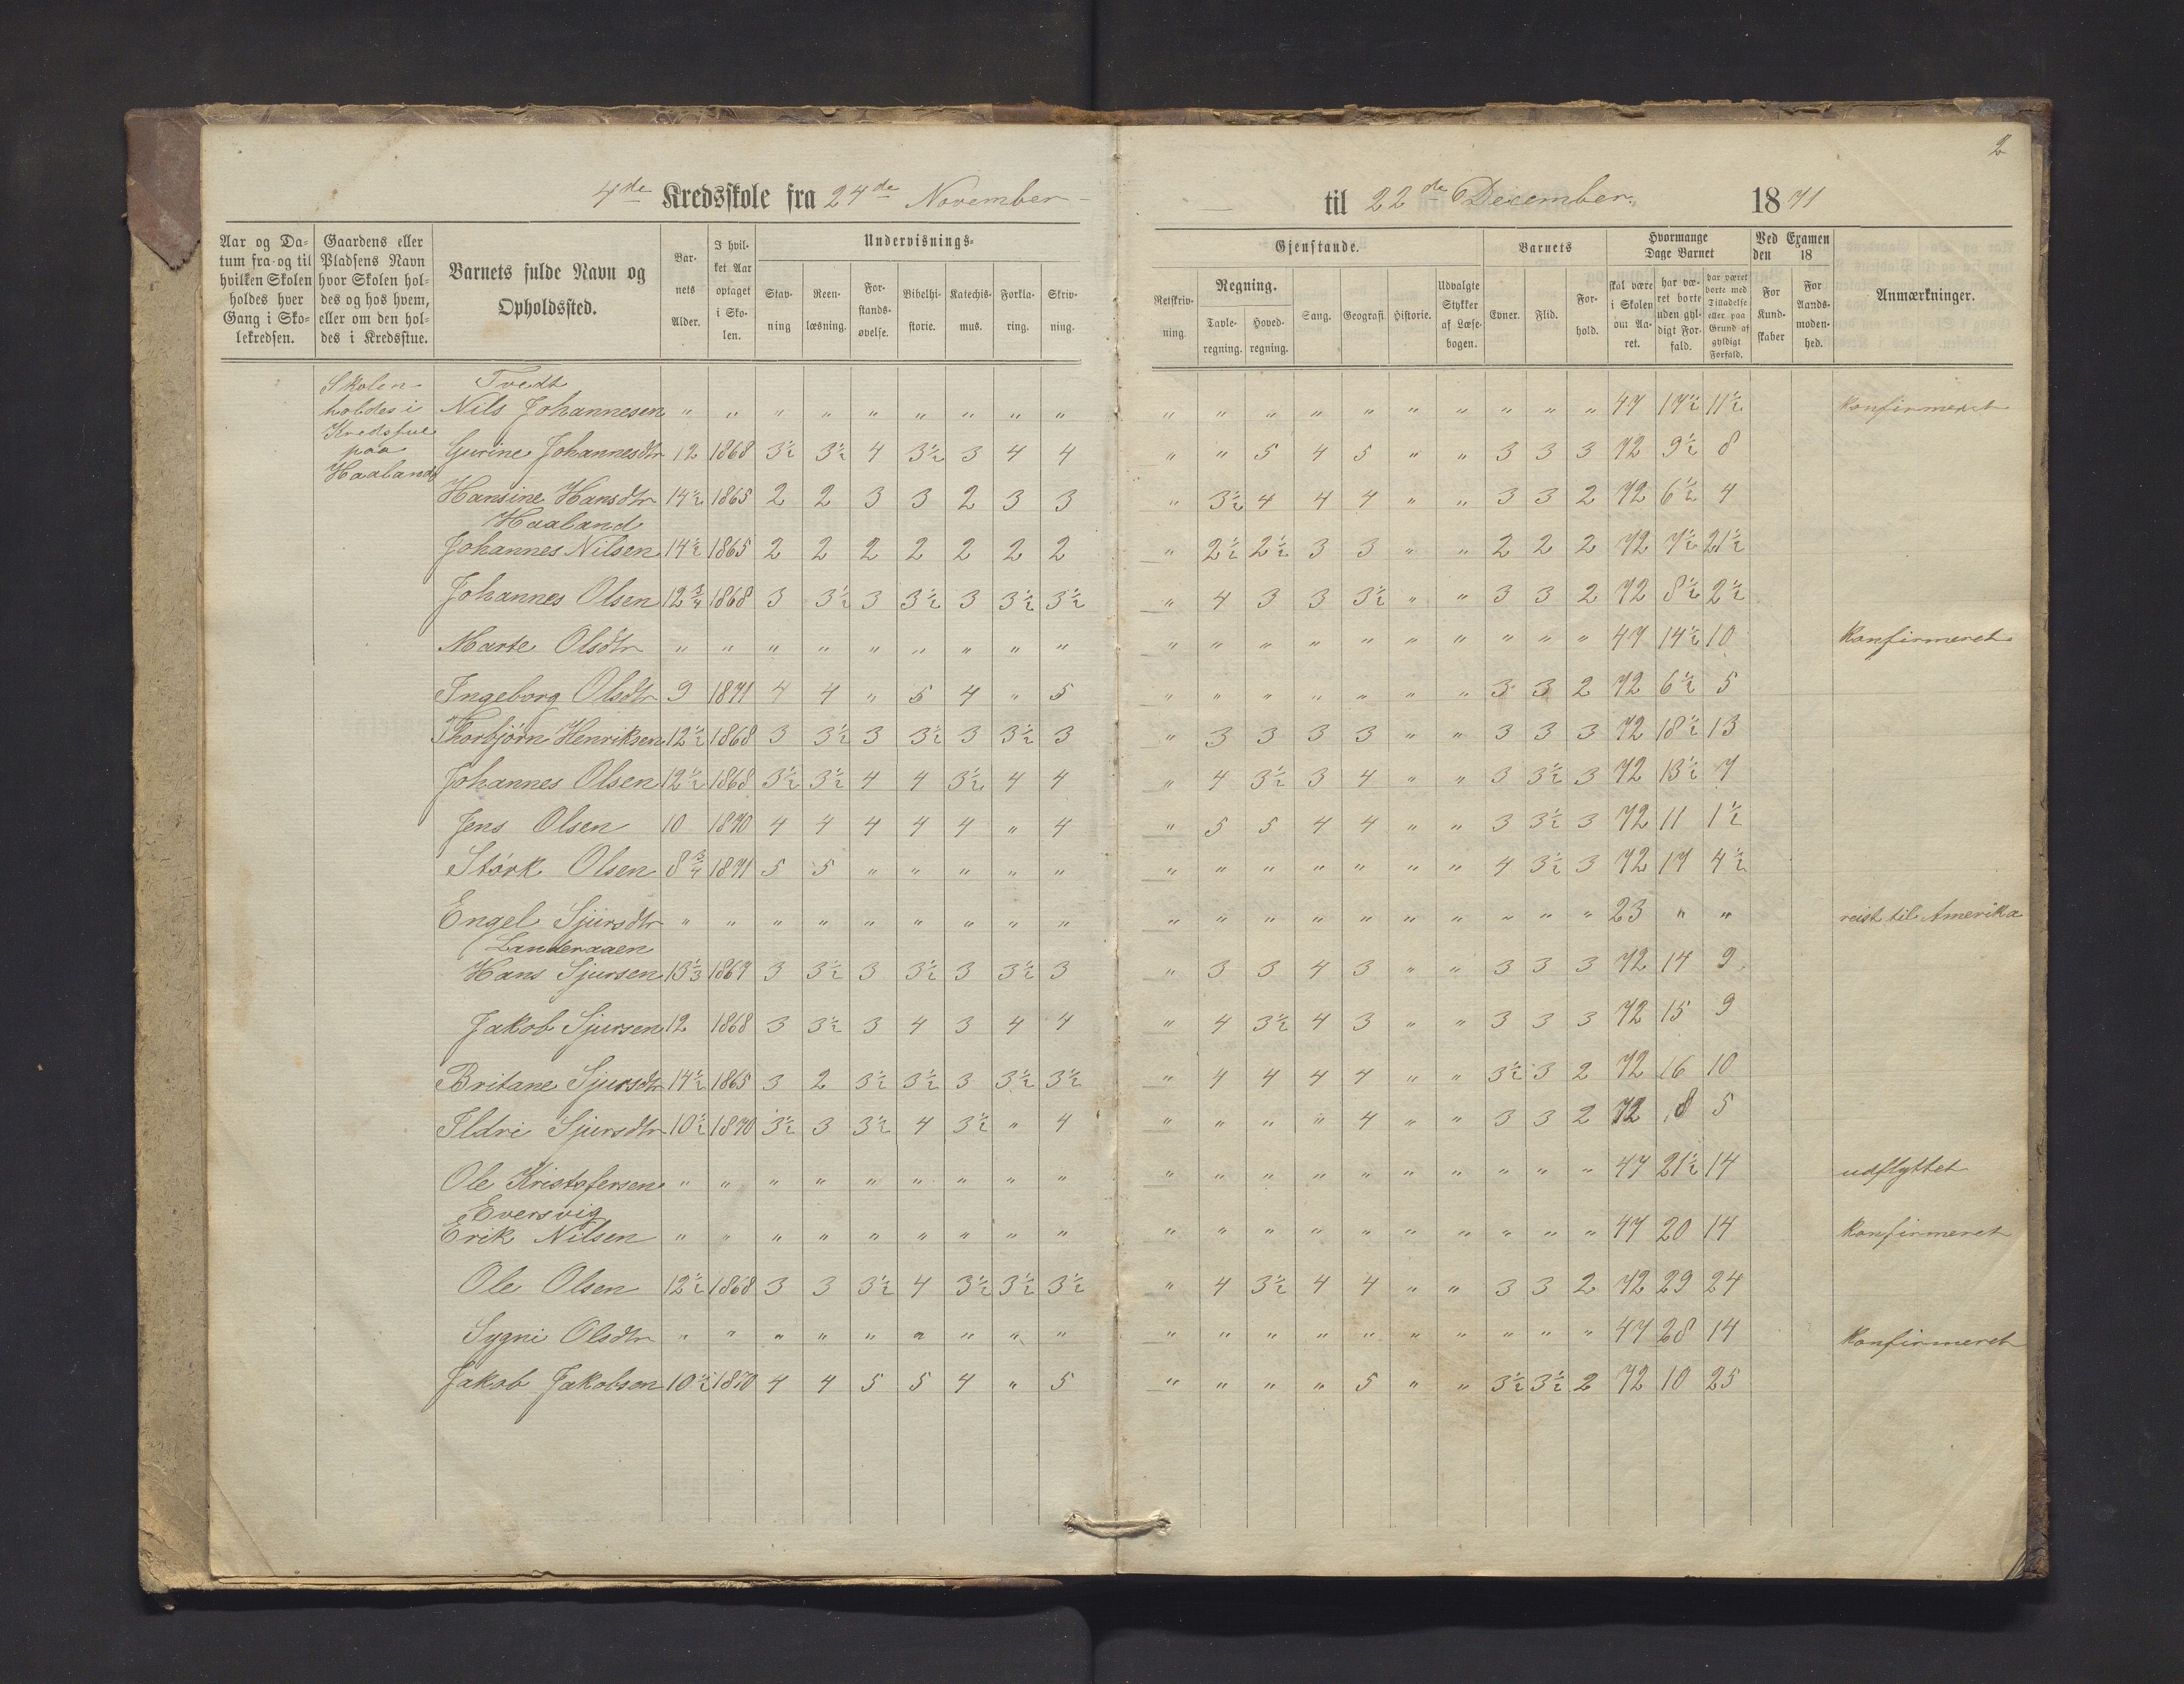 2
4de Kredsskole fra 24de November — til 22de December 1871
Aar og Da- tum fra og til hvilken Skolen holdes hver Gang i Sko- lekredsen.
Gaardens eller Pladsens Navn hvor Skolen hol- des og hos hvem, eller om den hol- des i Kredsstue.
Barnets fulde Navn og Opholdssted.
Bar- nets Alder.
I hvil- ket Aar optaget i Sko- len.
Undervisnings- Gjenstande.
Stav- ning
Reen- læsning.
For- stands- øvelse.
Bibelhi- storie.
Katechis- mus.
Forkla- ring.
Skriv- ning.
Retskriv- ning
Regning.
Tavle- regning.
Hoved- regning.
Sang.
Geografi.
Historie.
Udvalgte Stykker af Læse- bogen.
Barnets
Evner.
Flid.
For- hold.
Hvormange Dage Barnet
skal være i Skolen om Aa- ret.
har væ- ret borte uden gyl- digt For- fald.
har været borte med Tilladelse eller paa Grund af gyldigt Forfald.
Ved Examen den 18
For Kund- skaber
For Aands- moden- hed.
Anmærkninger.
Skolen holdes i
paa Haaland
Tvedt
Nils Johannesen " " " " " " " " " " " " " " " " " " " 47 17½ 11½ konfirmeret
Gurine Johannesdtr 12 1868 3½ 3½ 4 3½ 3 4 4 " " 5 4 5 " " 3 3 3 72 9½ 8
Hansine Hansdtr 14½ 1865 2 2 3 3 2 3 3 " 3½ 4 4 4 " " 3 3 2 72 6½ 4
Haaland
Johannes Nilsen 14½ 1865 2 2 2 2 2 2 2 " 2½ 2½ 3 3 " " 2 2 2 72 7½ 21½
Johannes Olsen 12¾ 1868 3 3½ 3 3½ 3 3½ 3½ " 4 3 3 3½ " " 3 3 2 72 8½ 2½
Marte Olsdtr " " " " " " " " " " " " " " " " " " " 47 14½ 10 konfirmeret
Ingeborg Olsdtr 9 1871 4 4 " 5 4 " 5 " " " " " " " 3 3 2 72 6½ 5
Thorbjörn Henriksen 12½ 1868 3 3½ 3 3½ 3 3½ 3 " 3 3 3 3 " " 3 3 3 72 18½ 13
Johannes Olsen 12½ 1868 3½ 3½ 4 4 3½ 4 4 " 4 3½ 3 4 " " 3 3½ 3 72 13½ 7
Jens Olsen 10 1870 4 4 4 4 4 " 4 " 5 5 4 4 " " 3 3½ 3 72 11 1½
Störk Olsen 8¾ 1871 5 5 " " " " " " " " " " " " 4 3½ 3 72 17 4½
Engel Sjursdtr " " " " " " " " " " " " " " " " " " " 23 " " reist til Amerika
Landeraaen
Hans Sjursen 13⅓ 1867 3 3½ 3 3½ 3 3½ 3 " 3 3 4 3 " " 3 3 3 72 14 9
Jakob Sjursen 12 1868 3 3½ 3 4 3 4 4 " 4 3½ 4 3 " " 3 3 3 72 15 9
Britane Sjursdtr 14½ 1865 3 2 3½ 3½ 3 3½ 3½ " 4 4 4 4 " " 3½ 3 2 72 16 10
Ildri Sjursdtr 10½ 1870 3½ 3 3½ 4 3½ " 4 " " " " 4 " " 3 3 2 72 8 5
Ole Kristofersen " " " " " " " " " " " " " " " " " " " 47 21½ 14 udflyttet
Eversvig
Erik Nilsen " " " " " " " " " " " " " " " " " " " 47 20 14 konfirmeret
Ole Olsen 12½ 1868 3 3 3½ 4 3½ 3½ 3½ " 4 3½ 4 4 " " 3 3 2 72 29 24
Sygni Olsdtr " " " " " " " " " " " " " " " " " " " 47 28 14 konfirmeret
Jakob Jakobsen 10½ 1870 4 4 5 5 4 " 5 " " " " 5 " " 3½ 3½ 2 72 10 25